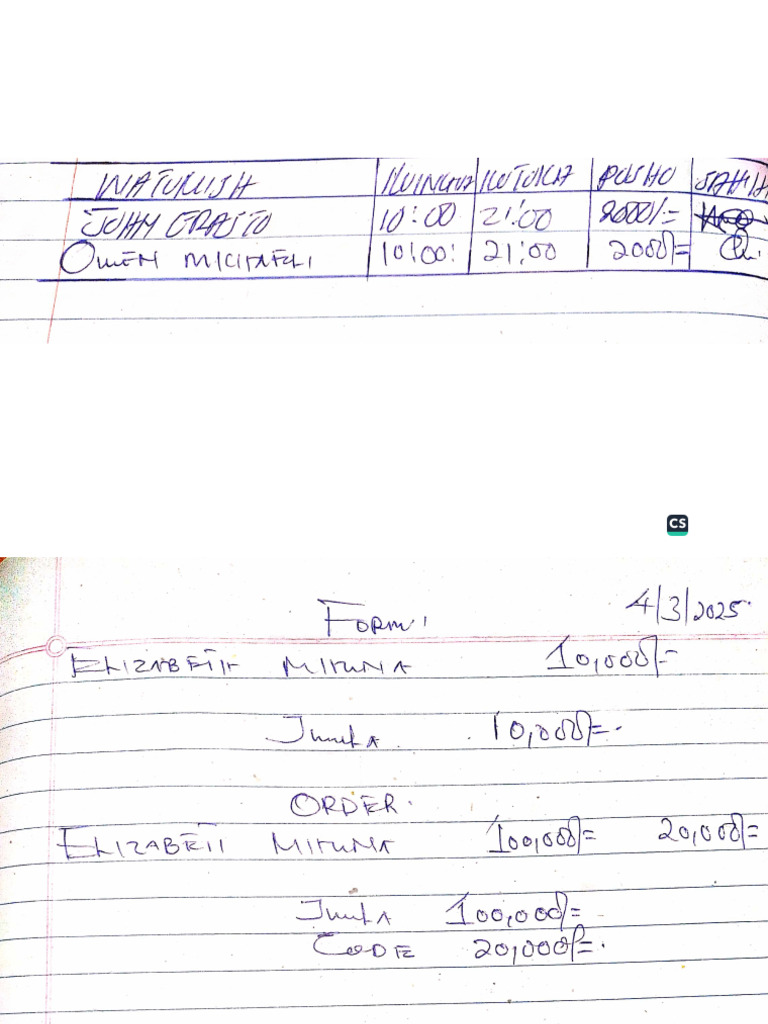 WATUMISHI KUINGIA KUTOKA POSHO SAHIH
JOHN ERASTO 10:00 21:00 2000/=
OWEN MICHAELI 10:00: 21:00 2000/=
CS
FORM: 4/3/2025
ELIZABETH 10,000/=
Jumla 10,000/=.
ORDER.
ELIZABETH 100,000/= 20,000/=
Jumla 100,000/=
CODE 20,000/=.